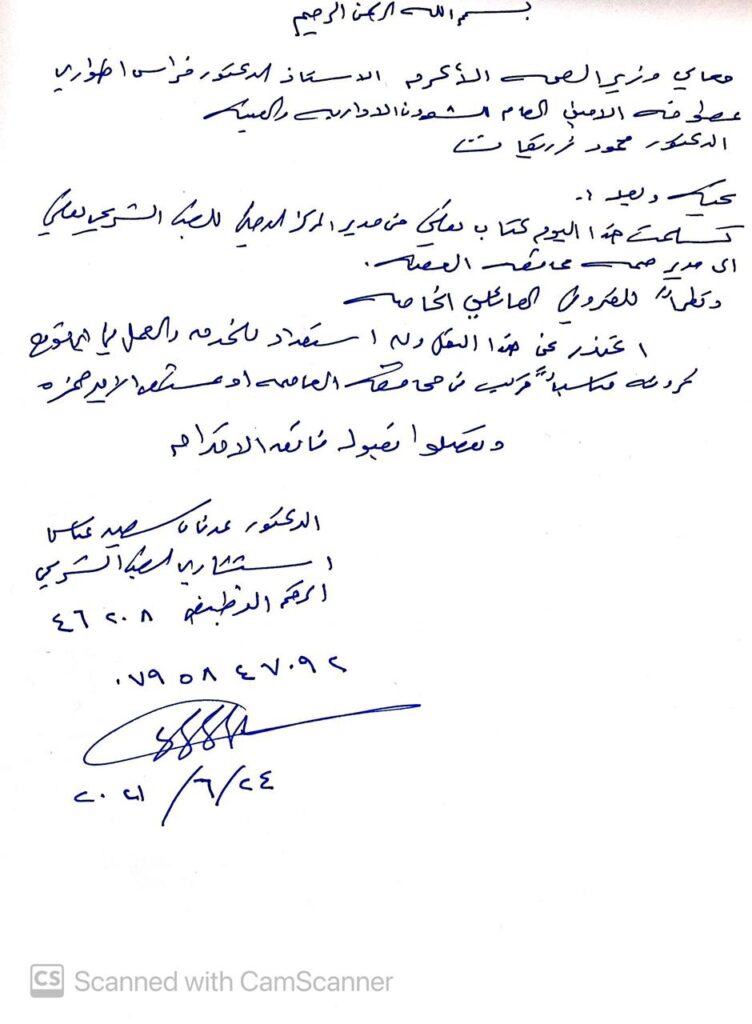 بسم الله الرحمن الرحيم
معالي وزير الصحه الأكرم الاستاذ الدكتور فراس الهواري
عطوفه الامين العام للشؤون الاداريه والفنيه
الدكتور محمود زريقات
تحيه وبعد ،،
تسلمت هذا اليوم كتاب نقلي من مدير المركز الوطني للطب الشرعي نقلي
الى مدير صحه محافظه العقبه.
ونظراً للظروف العائليه الخاصه
اعتذر عن هذا النقل وله استعداد للخدمه والعمل بأي موقع
ترونه مناسباً قريب من محافظه العاصمه او مستشفى الامير حمزه
وتفضلوا بقبول فائق الاحترام
الدكتور عدنان سعيد عباس
استشاري الطب الشرعي
الرقم الوظيفي ٤٦٢٠٨
٠٧٩٥٨٤٧٠٩٢
٢٠٢١/٦/٢٤
CS Scanned with CamScanner